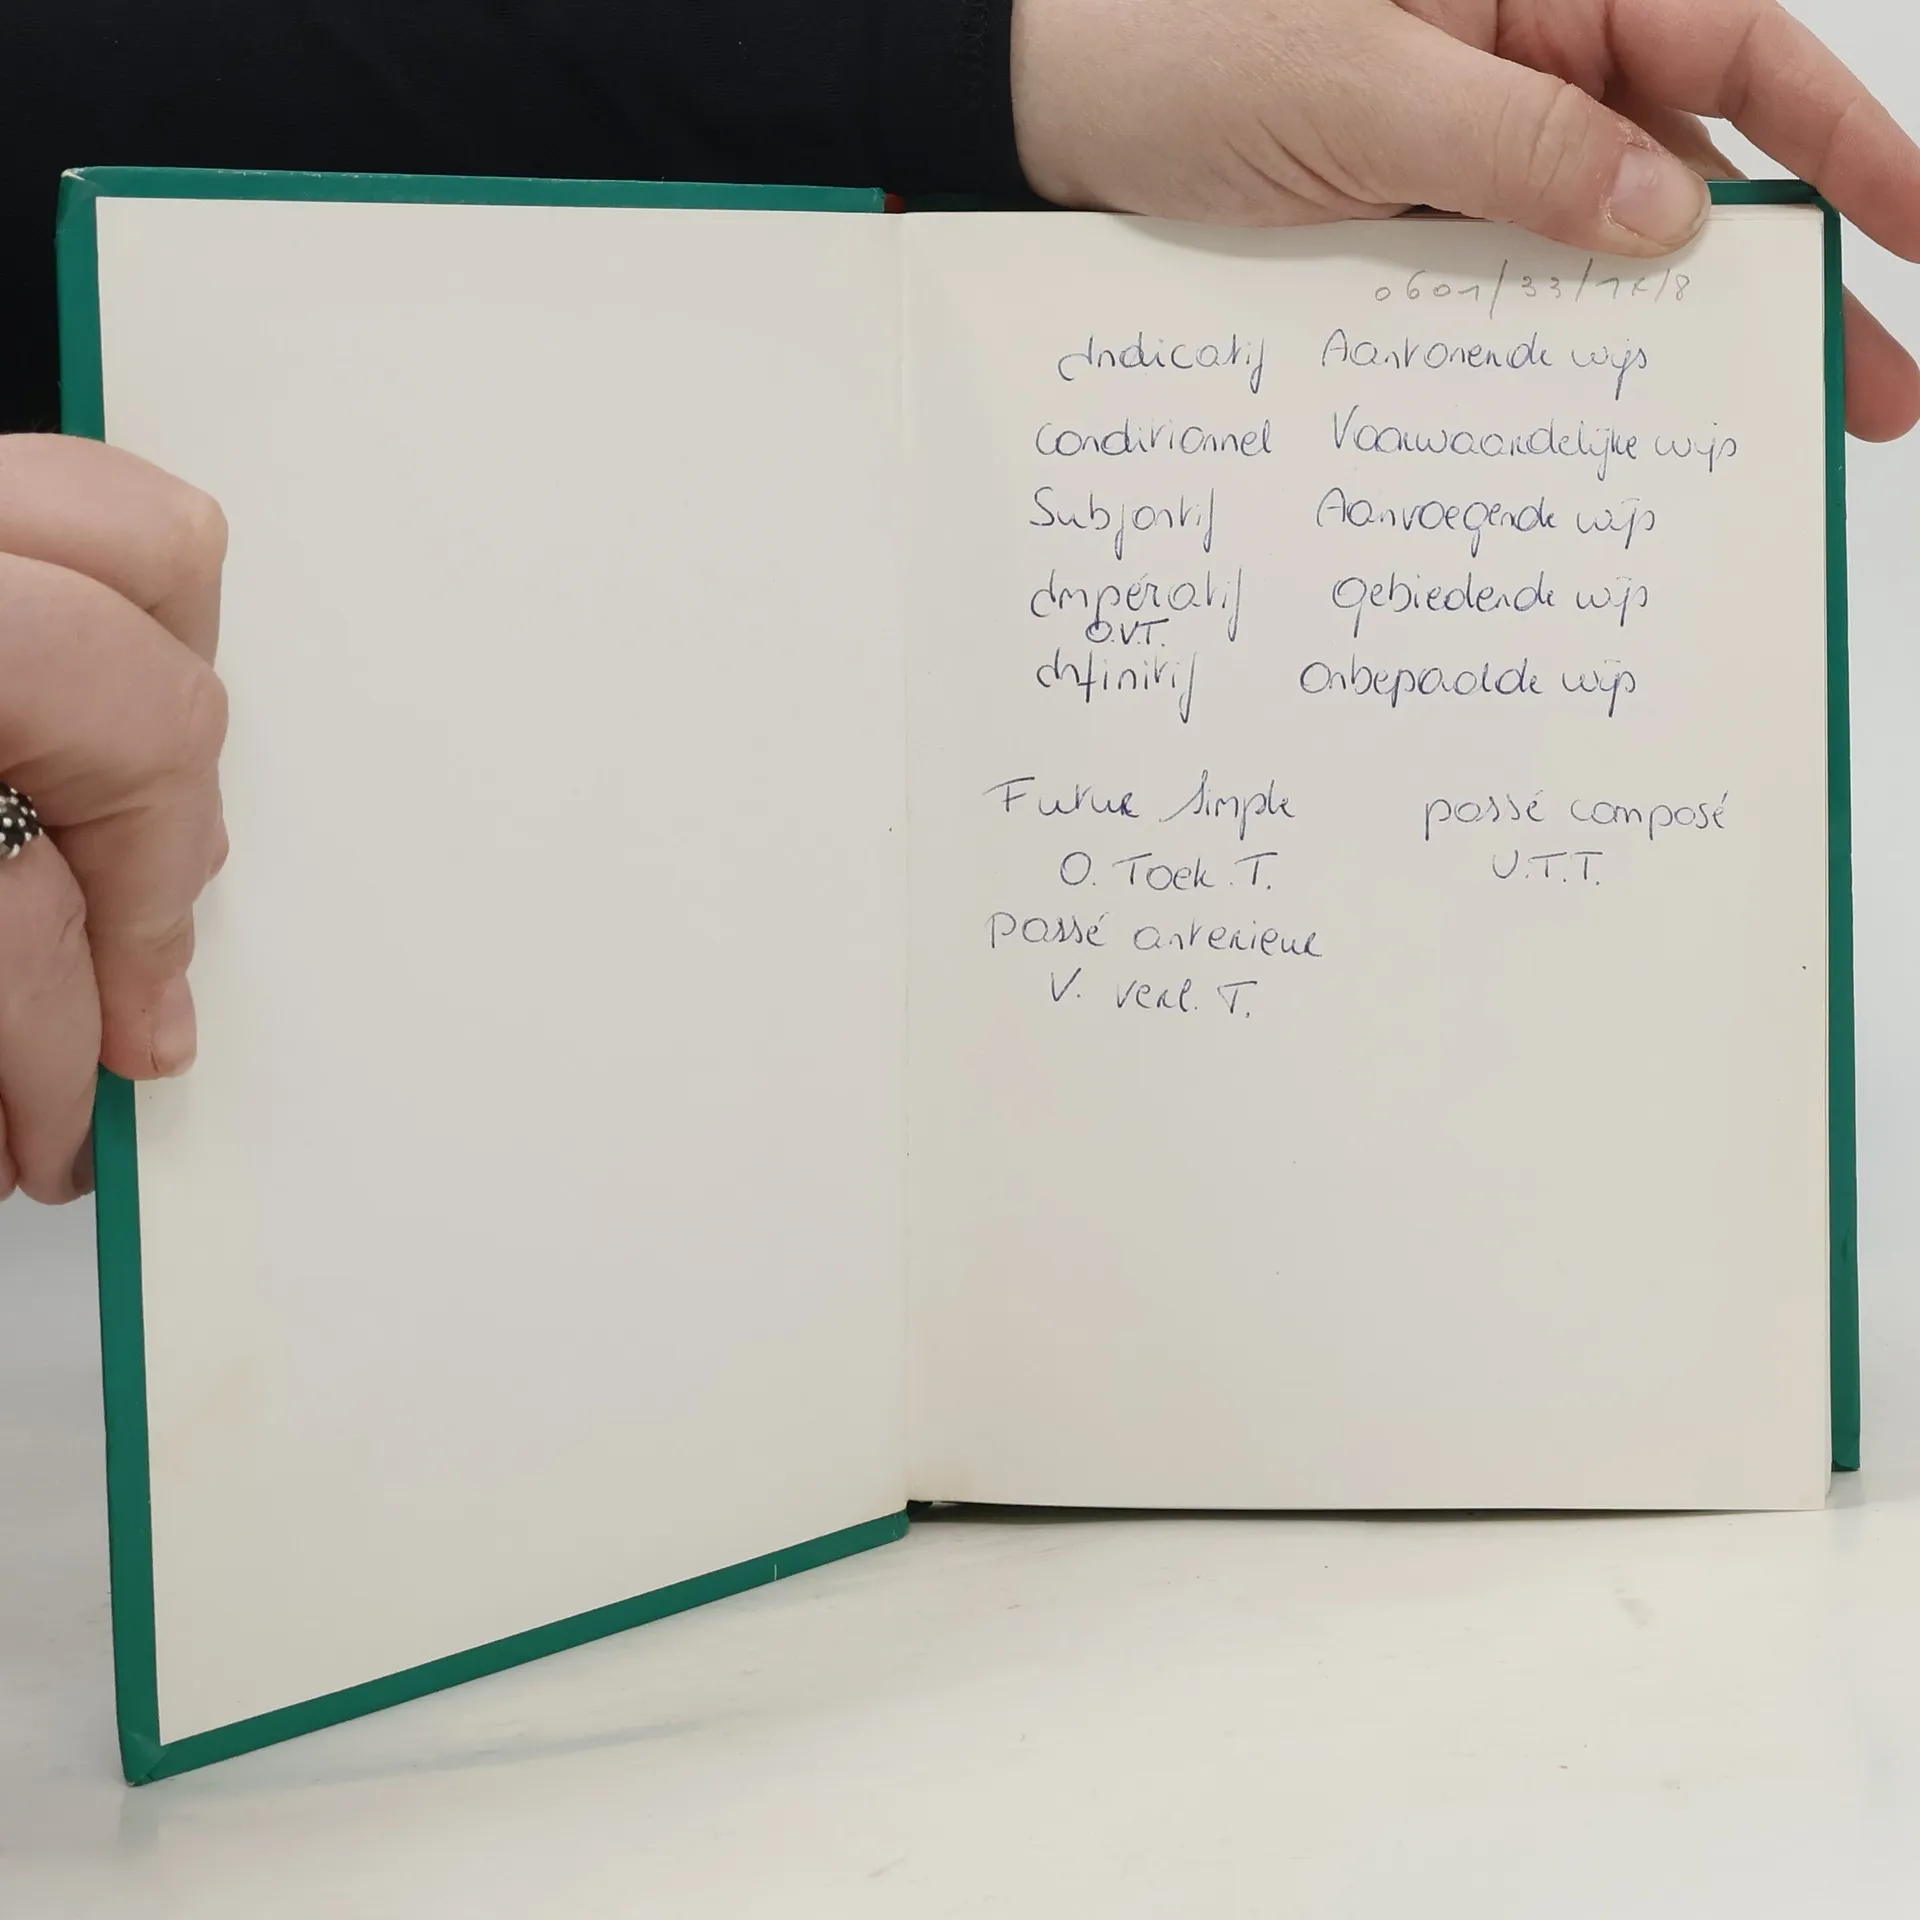 0601/33/1x/8
Indicatif Aantonende wijs
Conditionnel Voorwaardelijke wijs
Subjontif Aanvoegende wijs
Impératif Gebiedende wijs
O.V.T.
Infinitif Onbepaalde wijs
Futur simple passé composé
O. Toek. T. V.T.T.
passé anterieur
V. Verl. T.